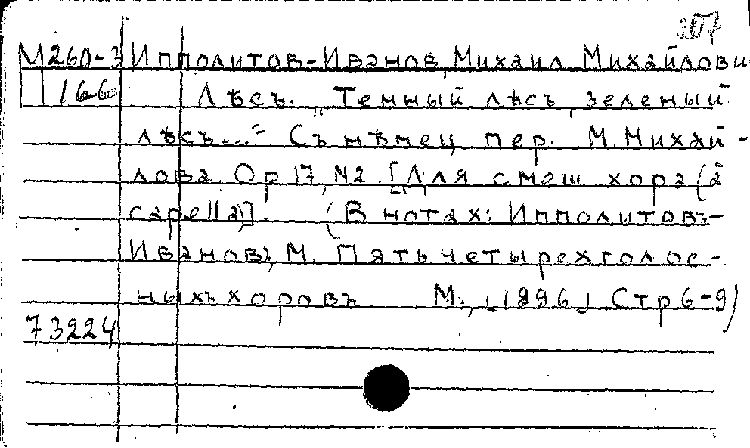 307
М260-3 Ипполитов-Иванов, Михаил Михайлови
166 Лѣсъ. "Темный лѣсъ, зеленый
лѣсъ..." Съ нѣмец. пер. М. Михай-
лова. Op 17, №2. [Для смеш. хора (a
capella)]. (В нотах: Ипполитовъ-
Ивановъ, М. Пять четырехголос-
ныхъ хоровъ М., [1896] Стр 6-9)
73224